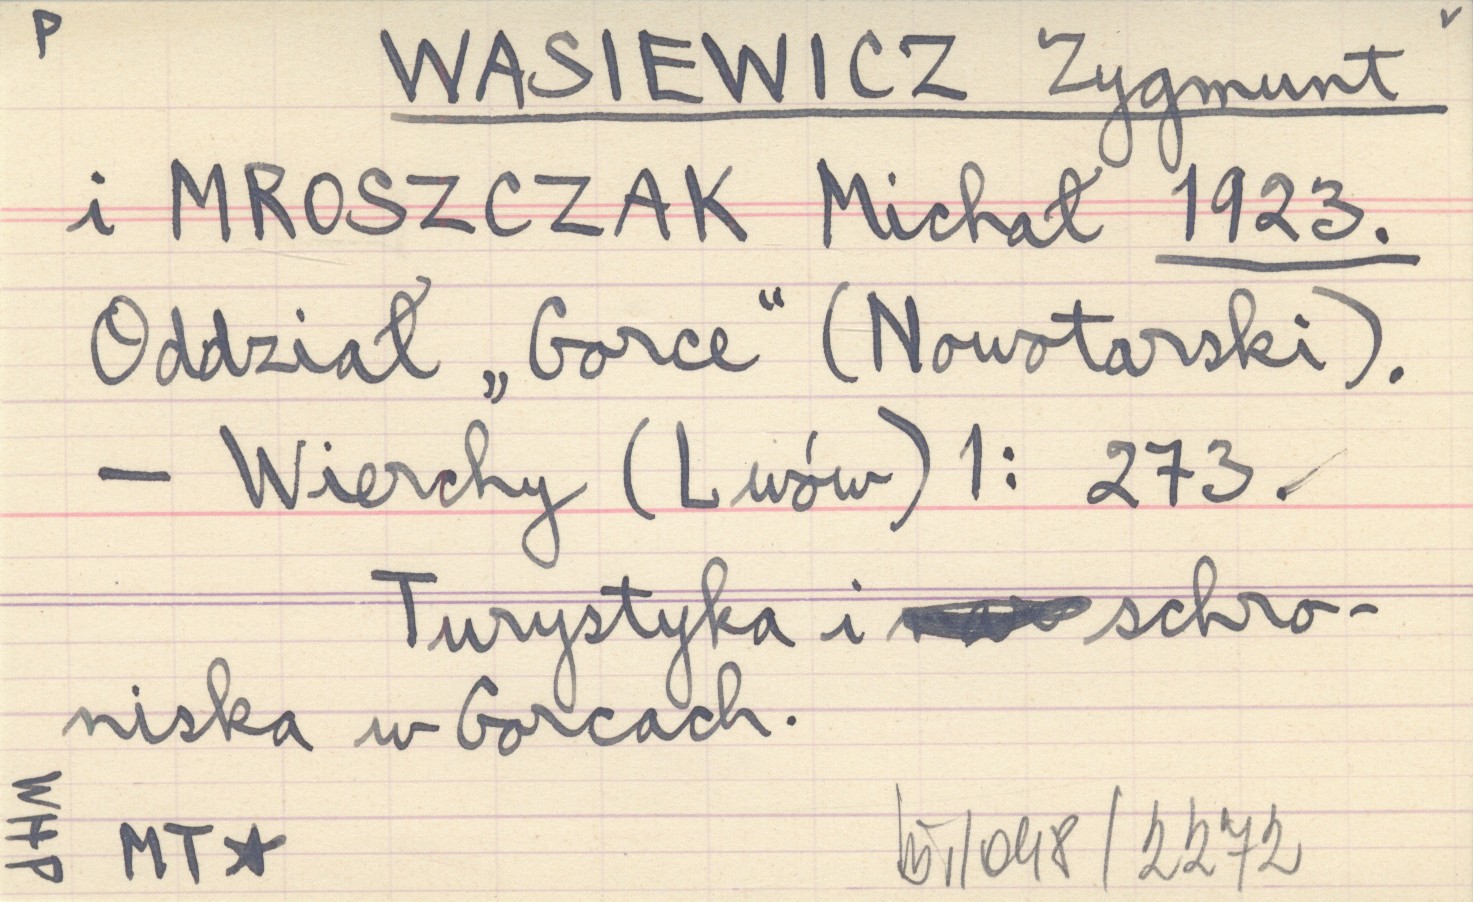 P
WASIEWICZ Zygmunt
i MROSZCZAK Michał 1923.
Oddział „Gorce“ (Nowotarski).
— Wierchy (Lwów) 1: 273.
Turystyka i schro-
niska w Gorcach.
WHP
MT★
/048/2272